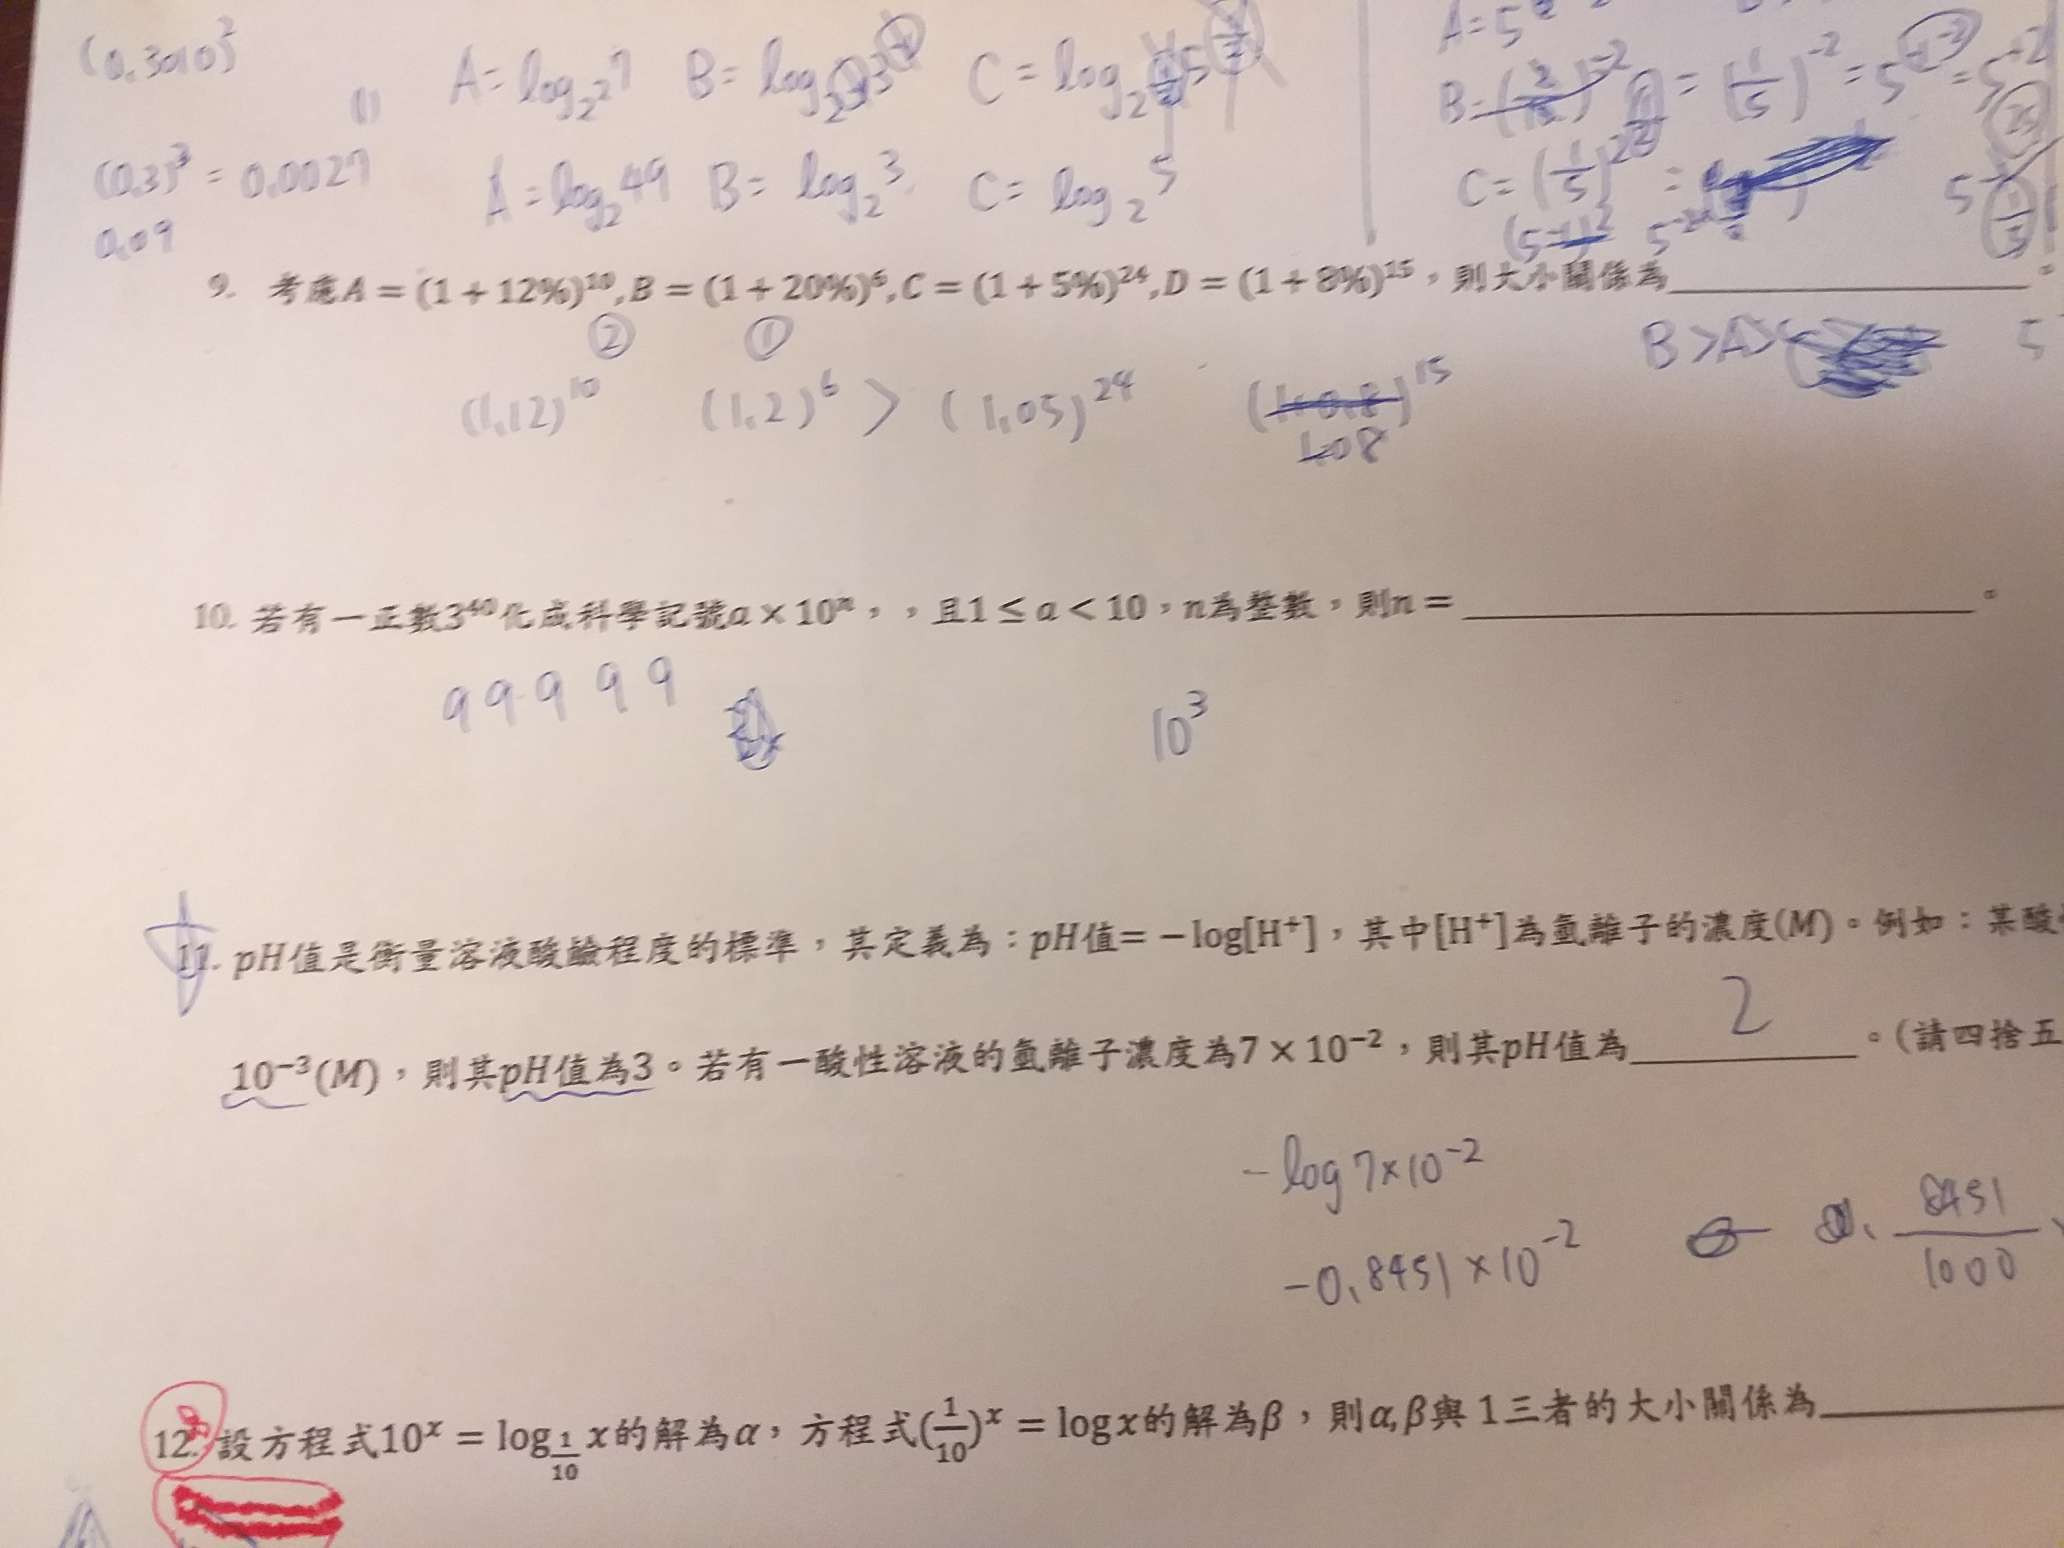 (0.3010)²
(1) A = log₂ 2⁷ B = log C = log₂ 5
A = 5
B = = (1/5)⁻² = 5 = 5⁻²
(0.3)³ = 0.0027
A = log₂ 49 B = log₂ 3 C = log₂ 5
C = (1/5)² =
0.09
9. 考慮A = (1 + 12%)¹⁰, B = (1 + 20%)⁶, C = (1 + 5%)²⁴, D = (1 + 8%)¹⁵,則大小關係為______。
② ①
B > A >
(1.12)¹⁰ (1.2)⁶ > (1.05)²⁴ ( )¹⁵
1.08
10. 若有一正數3⁴⁰化成科學記號a × 10ⁿ,,且1 ≤ a < 10,n為整數,則n = ______。
9 9 9 9 9
10³
11. pH值是衡量溶液酸鹼程度的標準,其定義為:pH值= −log[H⁺],其中[H⁺]為氫離子的濃度(M)。例如:某酸
10⁻³(M),則其pH值為3。若有一酸性溶液的氫離子濃度為7 × 10⁻²,則其pH值為 2 。(請四捨五
- log 7×10⁻²
- 0.8451 × 10⁻² 8451/1000
12. 設方程式10ˣ = log_(1/10) x的解為α,方程式(1/10)ˣ = log x的解為β,則α,β與 1三者的大小關係為______